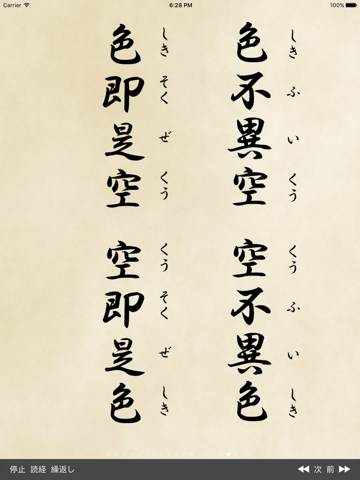 Carrier 6:28 PM 100%
色不異空 空不異色
しき ふ い くう くう ふ い しき
色即是空 空即是色
しき そく ぜ くう くう そく ぜ しき
停止 読経 繰返し 次 前